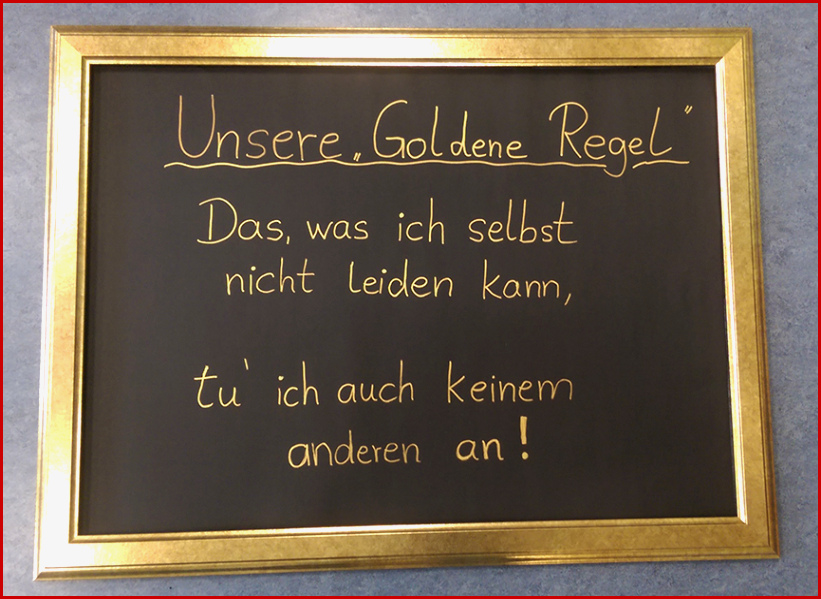 Unsere „Goldene Regel"
Das, was ich selbst
nicht leiden kann,
tu' ich auch keinem
anderen an!